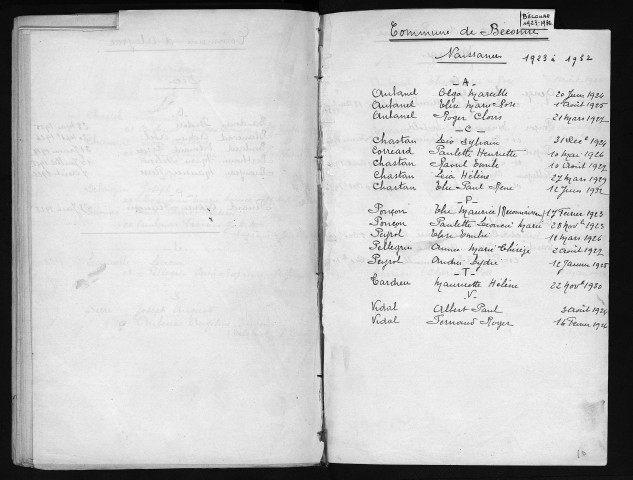 BÉCONNE
1923-1932
Commune de Béconne
Naissances 1923 à 1932
- A -
Autanel Olga Marcelle 20 Juin 1924
Autanel Elise Marie Rose 1 Août 1925
Autanel Roger Clovis 21 Mars 1927
- C -
Chastan Léo Sylvain 31 Déc 1924
Correard Paulette Henriette 10 Mai 1926
Chastan Raoul Emile 10 Août 1927
Chastan Léa Hélène 27 Mars 1929
Chastan Elie Paul René 12 Juin 1932
- P -
Ponçon Elie Maurice (Reconnaissance) 17 Février 1923
Ponçon Paulette Léoncie Marie 28 Nov 1923
Peyrol Elise Emilie 11 Mars 1926
Pellegrin Annie Marie Thérèse 2 Août 1927
Peyrol André 12 Janvier
- T -
Tardieu Mauricette Hélène 22 Nov 1930
- V -
Vidal Albert Paul 3 Août 1924
Vidal Fernand Roger 16 Février